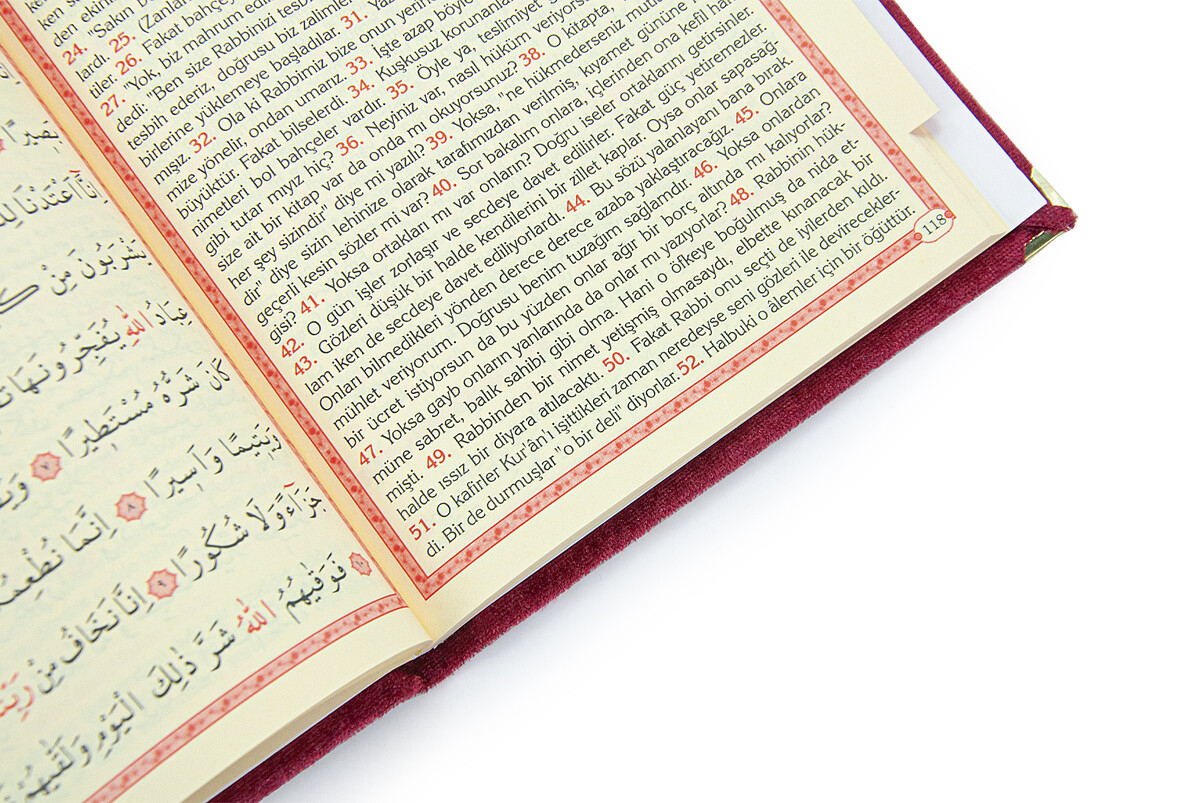 den
24. "Sakın
lardı. 25.
tiler. 26. Fakat
27. "Yok, biz mahrum
dedi: 'Ben size Rabbinizi
tesbih ederiz, doğrusu biz
birlerine yüklemeye başladılar. 31.
mışız. 32. Ola ki Rabbimiz bize onun
mize yönelir, ondan umarız. 33. İşte azap böyle
büyüktür. Fakat bilselerdi. 34. Kuşkusuz
nimetleri bol bahçeler vardır. 35. Öyle ya, teslimiyet
gibi tutar mıyız hiç? 36. Neyiniz var, nasıl hüküm
size ait bir kitap var da onda mı okuyorsunuz? 38. O kitapta,
her şey sizindir" diye mi yazılı? 39. Yoksa, "ne hükmederseniz
dir" diye sizin lehinize olarak tarafımızdan verilmiş, kıyamet gününe
geçerli kesin sözler mi var? 40. Sor bakalım onlara, içlerinden ona kefil
gisi? 41. Yoksa ortakları mı var onların? Doğru iseler ortaklarını getirsinler.
42. O gün işler zorlaşır ve secdeye davet edilirler. Fakat güç yetiremezler.
43. Gözleri düşük bir halde kendilerini bir zillet kaplar. Oysa onlar sapasağ-
lam iken de secdeye davet ediliyorlardı. 44. Bu sözü yalanlayanı bana bırak.
Onları bilmedikleri yönden derece derece azaba yaklaştıracağız. 45. Onlara
mühlet veriyorum. Doğrusu benim tuzağım sağlamdır. 46. Yoksa onlardan
bir ücret istiyorsun da bu yüzden onlar ağır bir borç altında mı kalıyorlar?
47. Yoksa gayb onların yanlarında da onlar mı yazıyorlar? 48. Rabbinin hük-
müne sabret, balık sahibi gibi olma. Hani o öfkeye boğulmuş da nida et-
mişti. 49. Rabbinden bir nimet yetişmiş olmasaydı, elbette kınanacak bir
halde ıssız bir diyara atılacaktı. 50. Fakat Rabbi onu seçti de iyilerden kıldı.
51. O kafirler Kur'ân'ı işittikleri zaman neredeyse seni gözleri ile devirecekler-
di. Bir de durmuşlar "o bir deli" diyorlar. 52. Halbuki o âlemler için bir öğüttür.
118
اِنَّٓا اَعْتَدْنَا
يَشْرَبُونَ مِنْ
عِبَادُ اللّٰهِ يُفَجِّرُونَهَا
كَانَ شَرُّهُ مُسْتَط۪يرًا ٧
وَيَت۪يمًا وَاَس۪يرًا ٨ اِنَّمَا
جَزَٓاءً وَلَا شُكُورًا ٩ اِنَّا نَخَافُ مِنْ
١٠ فَوَقٰيهُمُ اللّٰهُ شَرَّ ذٰلِكَ الْيَوْمِ وَلَقّٰيهُمْ